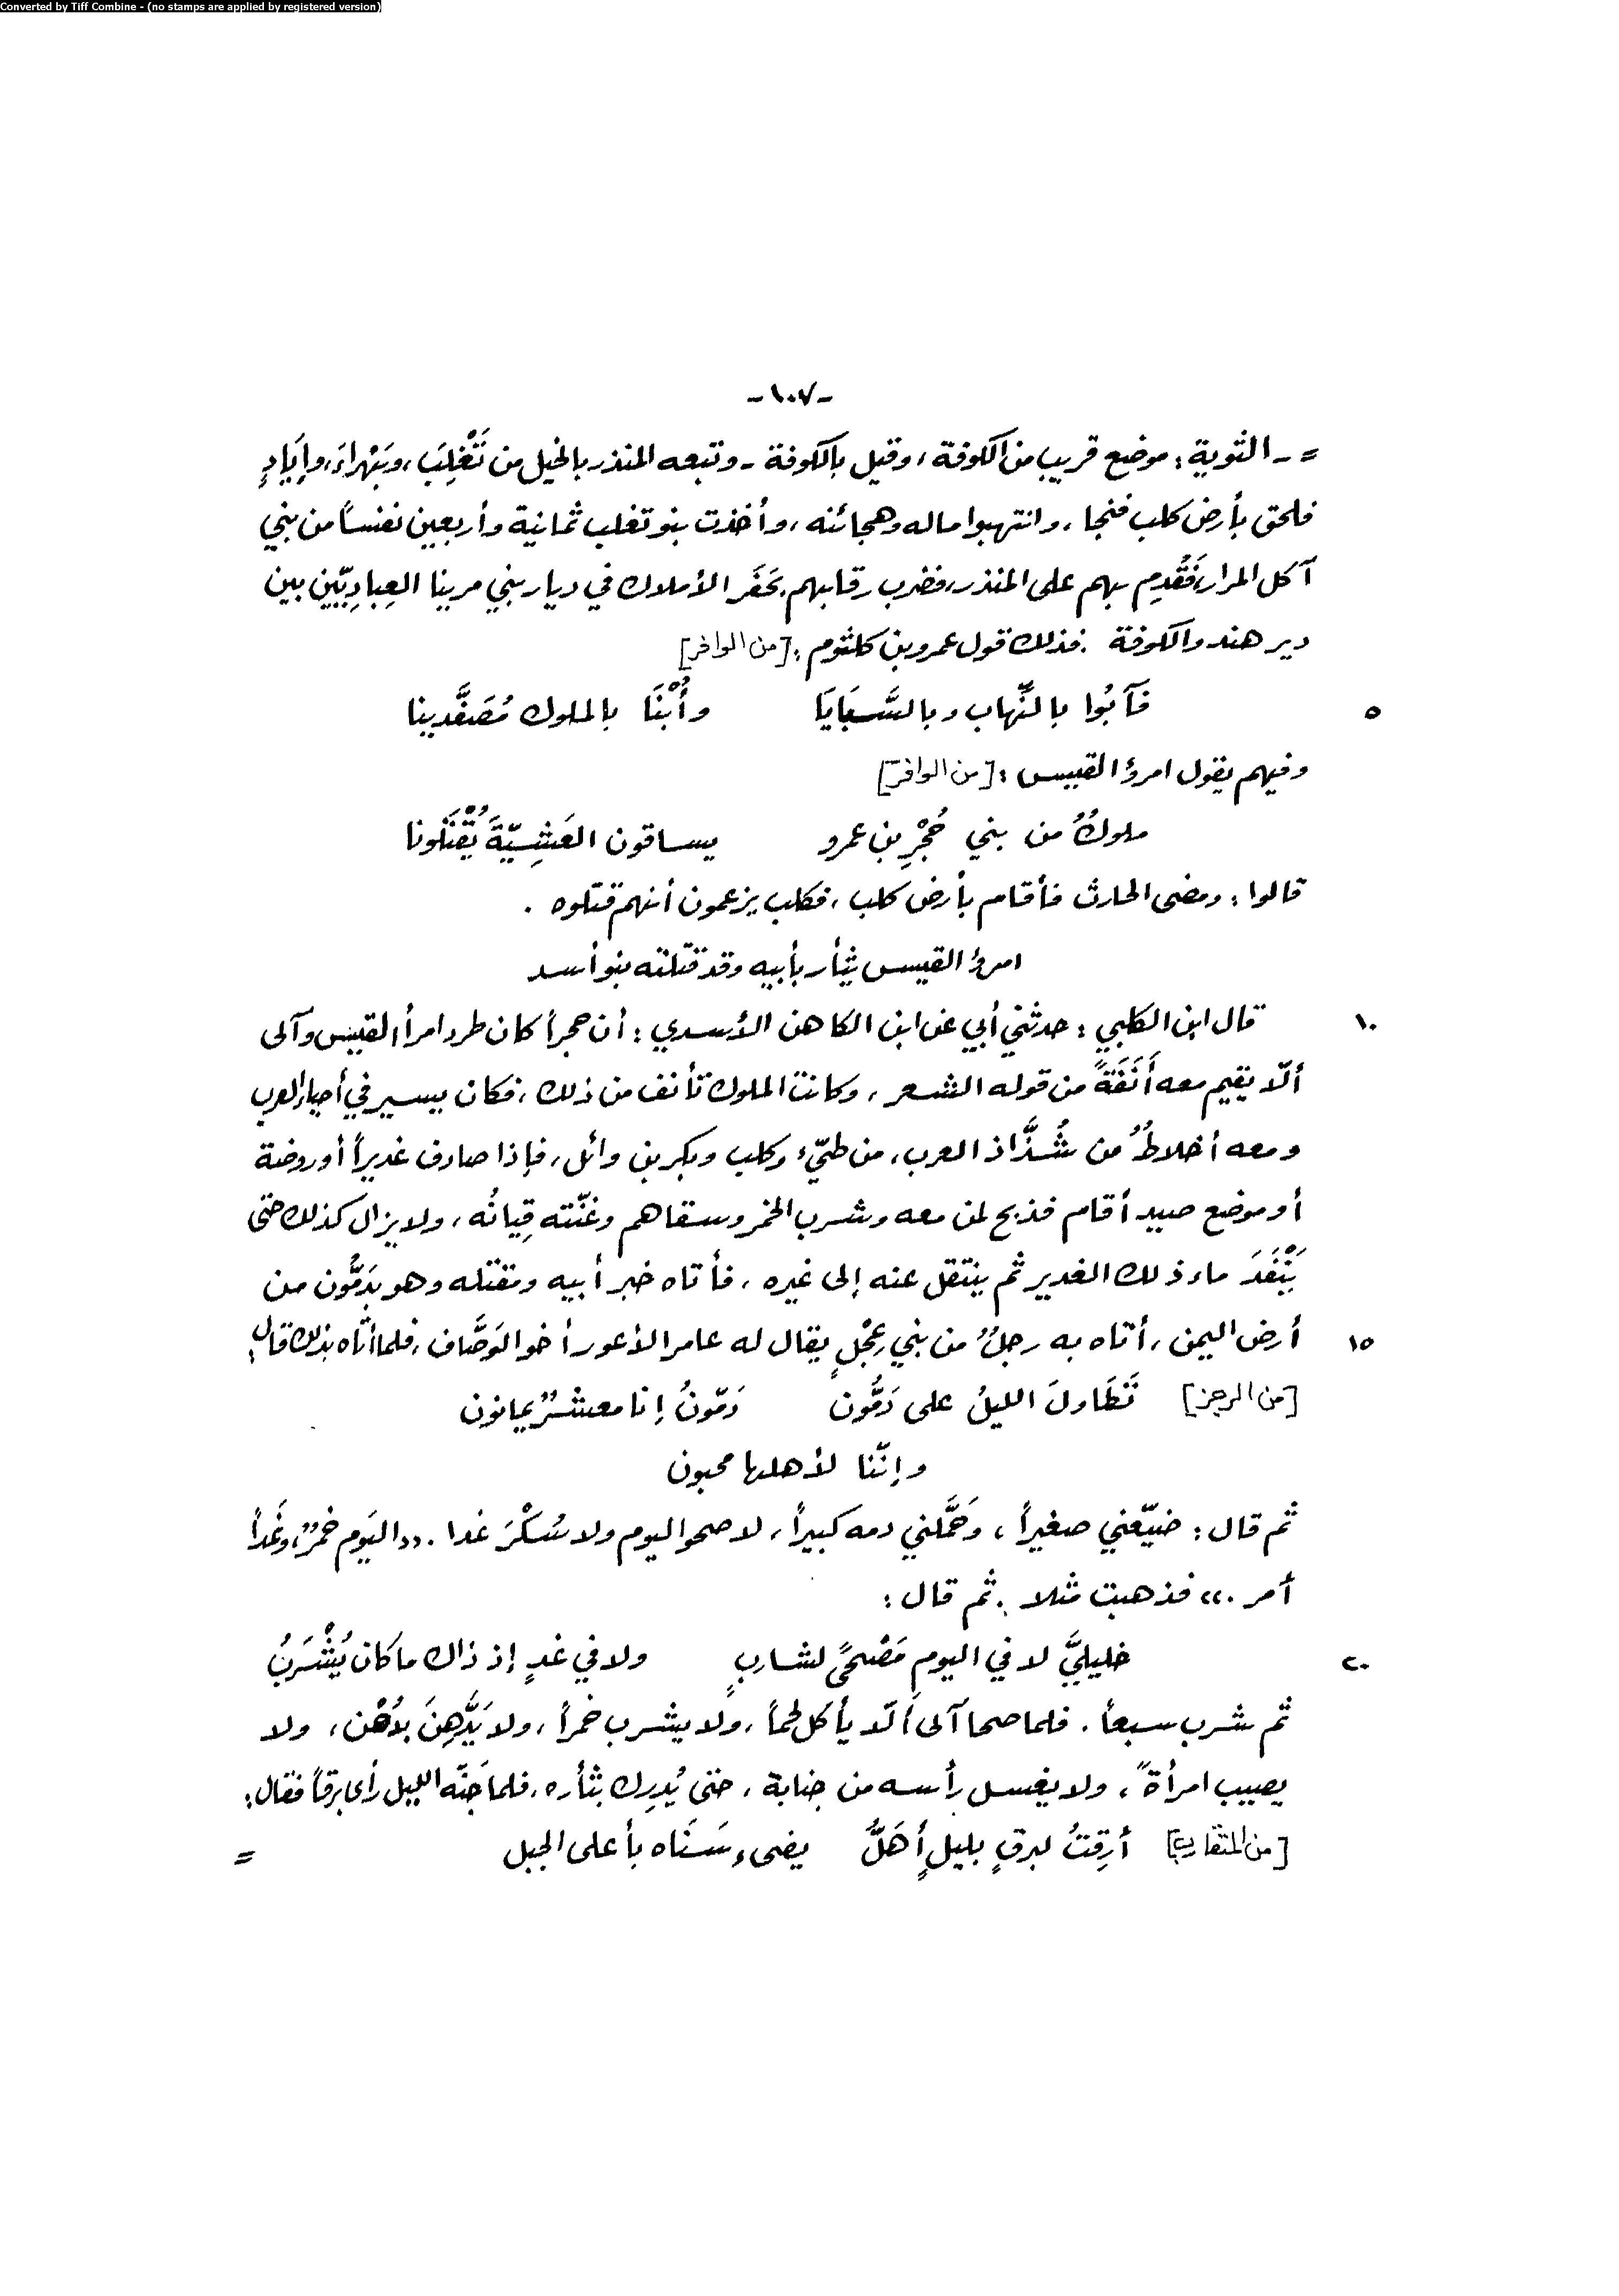 Converted by Tiff Combine - (no stamps are applied by registered version)
-١٠٧-
= - الثوية: موضع قريب من الكوفة، وقيل بالكوفة - وتبعه المنذر بالخيل من تَغْلِبَ، وبَهْراءَ، وإيَادٍ
فلحق بأرض كلب فنجا، وانتهبوا ماله وهجائنه، وأخذت بنو تغلب ثمانية وأربعين نفساً من بني
آكل المرار، فَقُدِم بهم على المنذر، فضرب رقابهم بحَفَر الأملاك في ديار بني مرينا العِبادِيّين بين
دير هند والكوفة. فذلك قول عمرو بن كلثوم: [من الوافر]
٥ فَآبُوا بالنّهاب وبالسَّبَايَا وأُبْنَا بالملوك مُصَفَّدينا
وفيهم يقول امرؤ القيس: [من الوافر]
ملوكٌ من بني حُجْرِ بن عمرو يساقون العَشِيّةَ يُقْتَلونا
قالوا: ومضى الحارث فأقام بأرض كلب، فكلب يزعمون أنهم قتلوه.
امرؤ القيس يثأر بأبيه وقد قتلته بنو أسد
١٠ قال ابن الكلبي: حدثني أبي عن ابن الكاهن الأسدي: أن حجراً كان طرد امرأ القيس وآلى
ألّا يقيم معه أَنَفَةً من قوله الشعر، وكانت الملوك تأنف من ذلك، فكان يسير في أحياء العرب
ومعه أخلاطٌ من شُذَّاذ العرب، من طيّء وكلب وبكر بن وائل، فإذا صادف غديراً أو روضة
أو موضع صيد أقام فذبح لمن معه وشرب الخمر وسقاهم وغنّته قِيانُه، ولا يزال كذلك حتى
يَنْفَدَ ماء ذلك الغدير ثم ينتقل عنه إلى غيره، فأتاه خبر أبيه ومقتله وهو بدَمُّون من
١٥ أرض اليمن، أتاه به رجلٌ من بني عِجْلٍ يقال له عامر الأعور أخو الوَصَّاف، فلما أتاه بذلك قال:
[من الرجز] تَطَاولَ الليلُ على دَمُّون دَمّونُ إنا معشرٌ يمانون
وإنّنا لأهلها محبون
ثم قال: ضيّعني صغيراً، وحَمَّلني دمه كبيراً، لا صحو اليوم ولا سُكْرَ غدا. «اليَوم خمرٌ، وغَداً
أمر.» فذهبت مثلا. ثم قال:
٢٠ خليليَّ لا في اليومِ مَصْحىً لشاربٍ ولا في غدٍ إذ ذاك ما كان يُشْرَبُ
ثم شرب سبعاً. فلما صحا آلى ألّا يأكل لحماً، ولا يشرب خمراً، ولا يَدَّهِنَ بدُهْن، ولا
يصيب امرأةً، ولا يغسل رأسه من جنابة، حتى يُدرِك بثأره، فلما جَنّه الليل رأى برقاً فقال:
[من المتقارب] أَرِقتُ لبرقٍ بليلٍ أَهَلَّ يضيء سَنَاه بأعلى الجبل
=